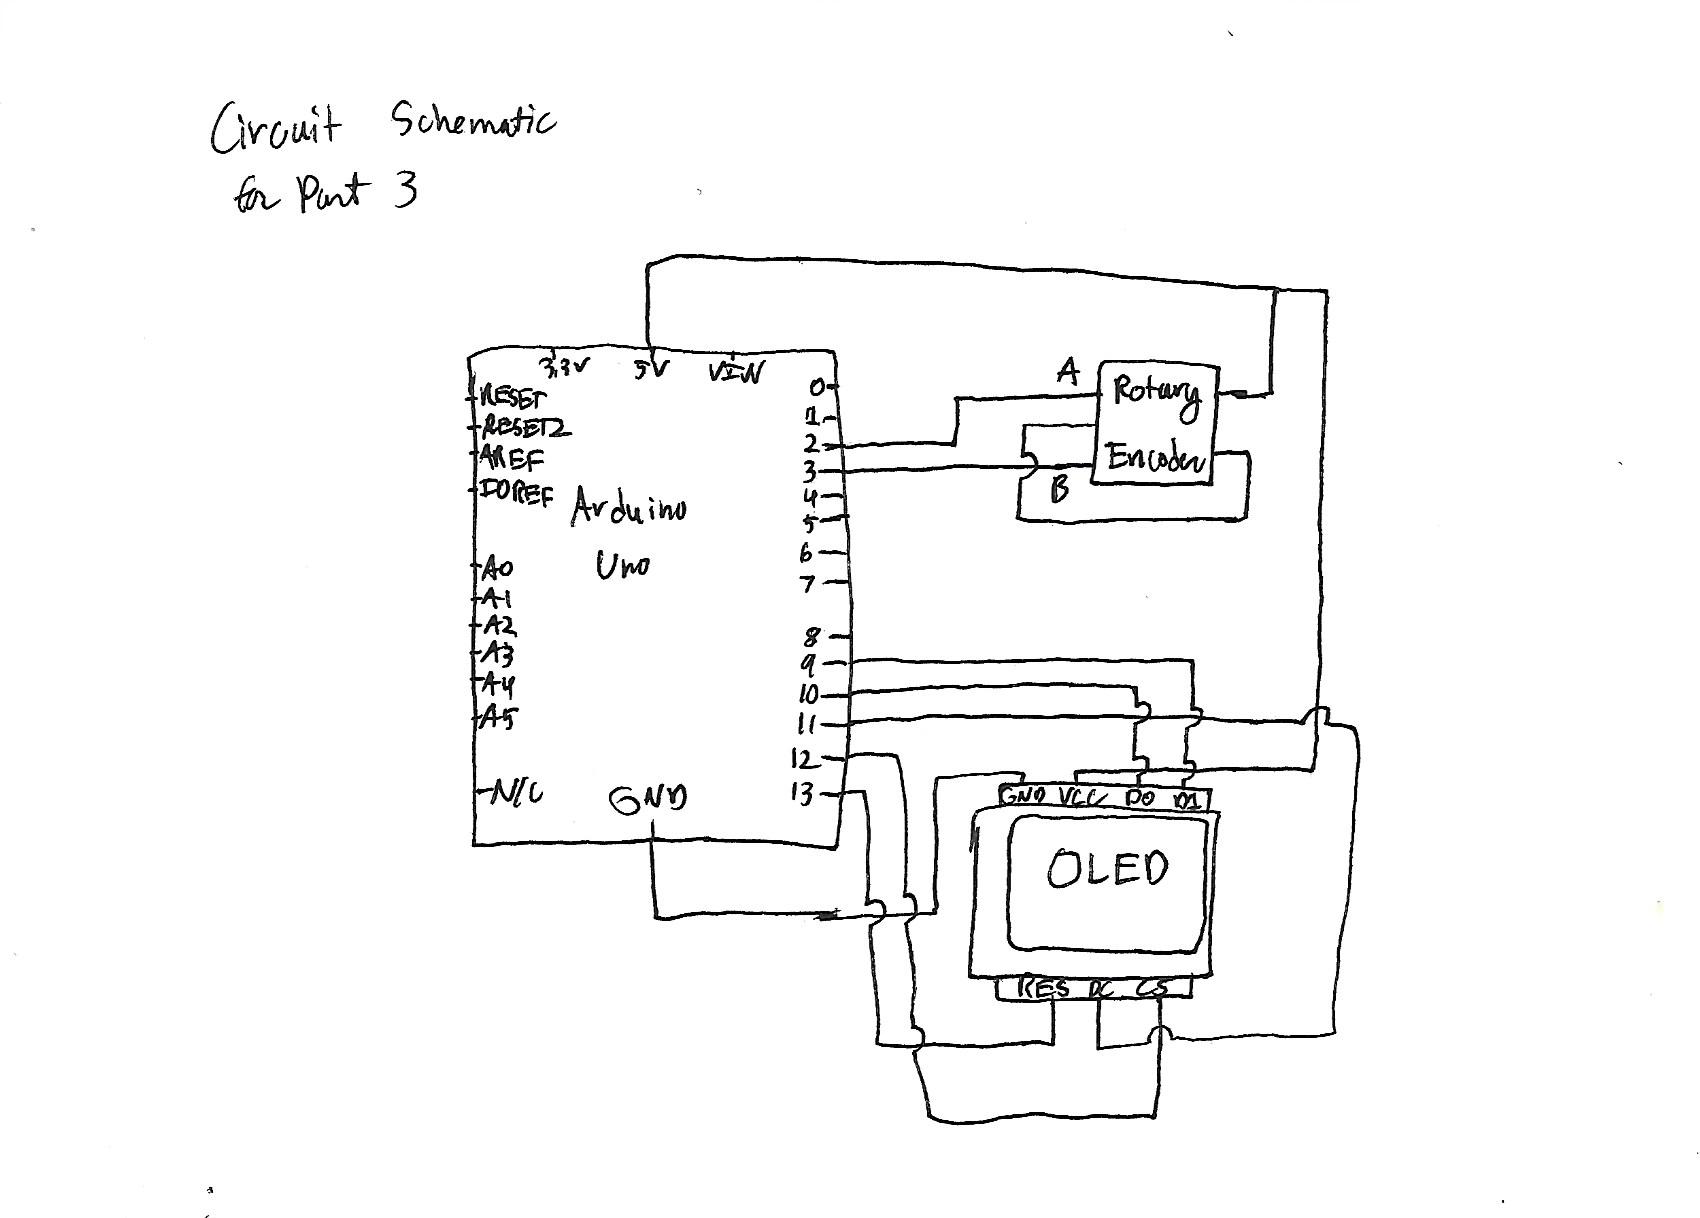 Circuit Schematic
for Part 3
3.3V 5V VIN
RESET
RESET2
AREF
IOREF
A0
A1
A2
A3
A4
A5
N/C
Arduino
Uno
GND
0
1
2
3
4
5
6
7
8
9
10
11
12
13
A
B
Rotary
Encoder
GND VCC D0 D1
OLED
RES DC CS